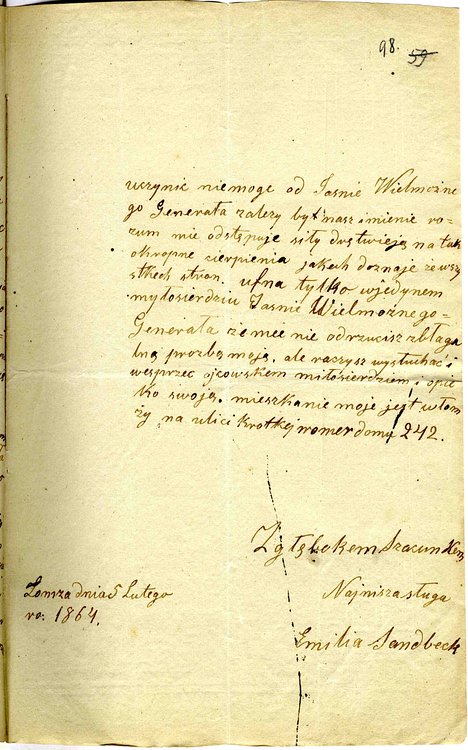 98. 59
uczynić niemogę od Jaśnie Wielmożne
go Generała zalezy byt nasz i mienie ro=
zum mie odstępuje siły drętwieją na tak
okropne cierpienia jakich doznaję ze wszy
stkich stron, ufna tylko w jedynem
myłosierdziu Jaśnie Wielmożnego=
Generała że mee nie odrzucisz zbłaga
lną prozbą moją, ale raczysz wysłuchać i
wesprzec ojcowskiem miłosierdziem, i opie
ko swoją, mieszkanie moje jest w łom
ży na ulici Krotkej nomer domu 242.
Z głębokem Szacunkem
Łomza dnia 5 Lutego
Najnisza sługa
ro: 1864.
Emilia Sandbeck